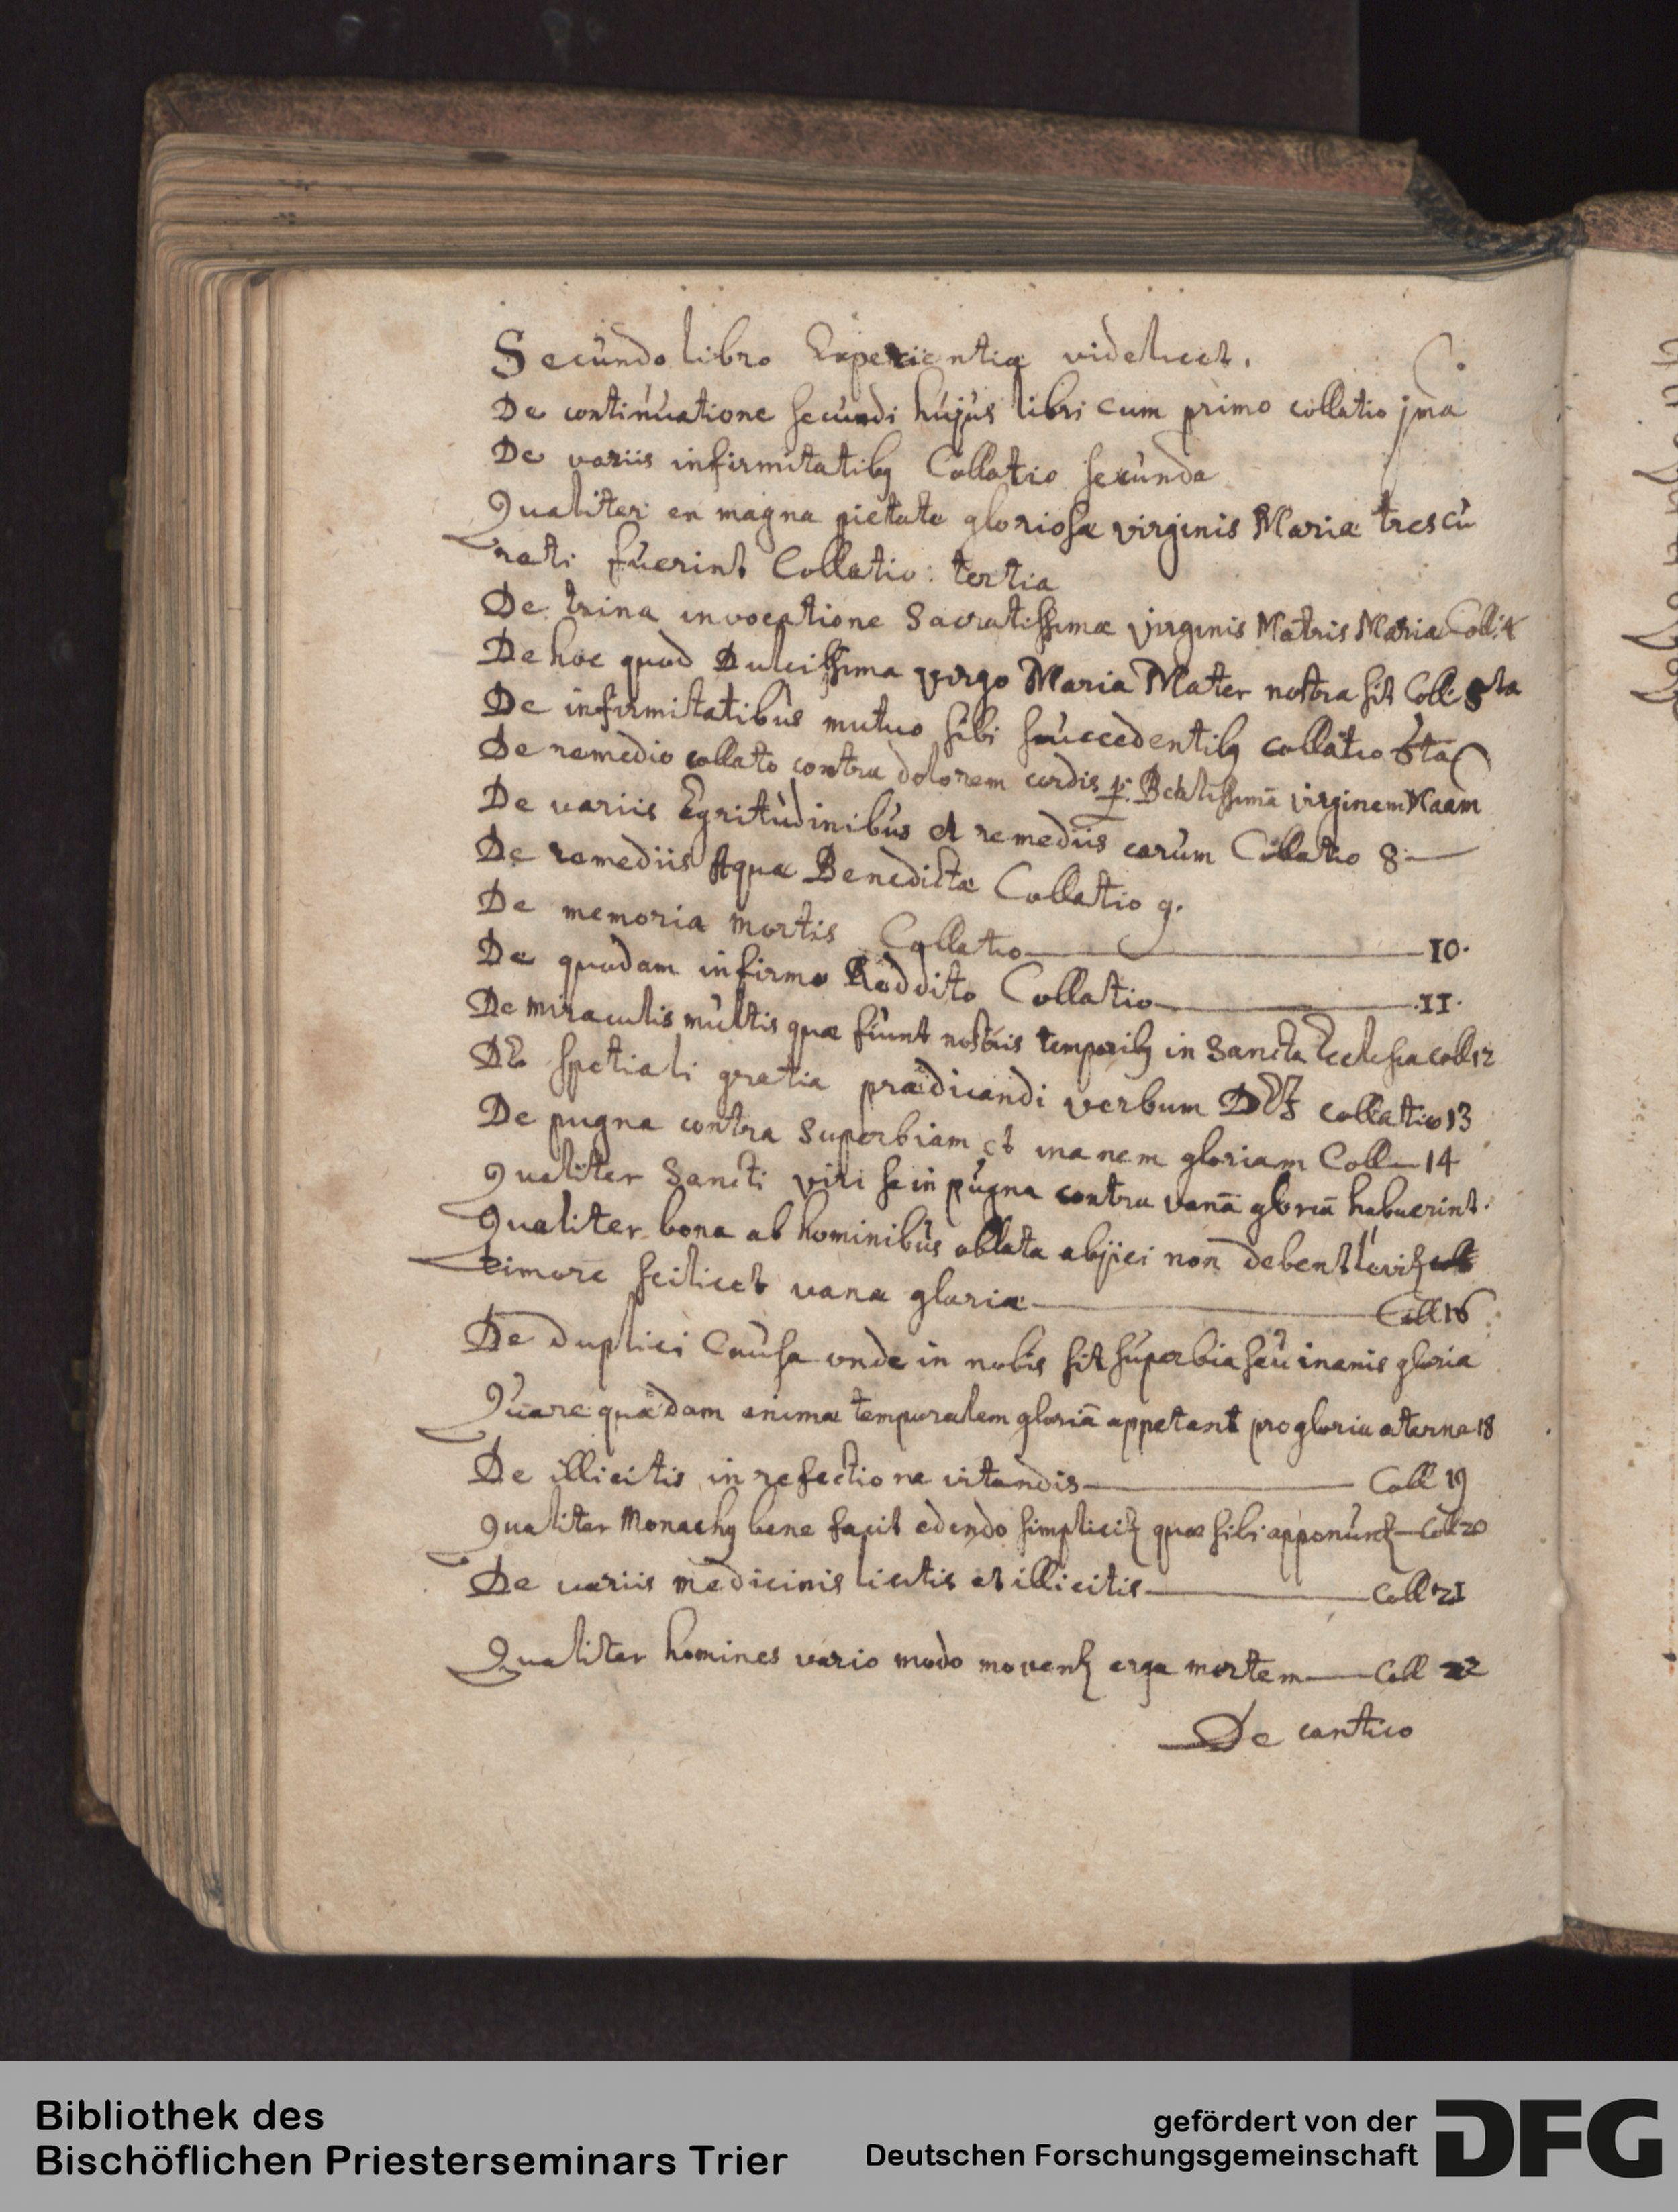 Secundo libro Experientiæ videlicet.
De continuatione secundi hujus libri cum primo collatio jma
De variis infirmitatibꝫ Collatio secunda
Qualiter ex magna pietate gloriosæ virginis Mariæ tres cu
rati fuerint Collatio: tertia
De trina invocatione Sacratissimæ virginis Matris Mariæ Coll: 4
De hoc quod Dulcissima virgo Maria Mater nostra sit Coll: 5ta
De infirmitatibus mutuo sibi succedentibꝫ collatio 6ta
De remedio collato contra dolorem cordis p. Beatissimā virginem Maam
De variis Egritudinibus et remediis earum Collatio 8
De remediis Aquæ Benedictæ Collatio 9.
De memoria mortis Collatio 10.
De quodam infirmo Reddito Collatio 11.
De miraculis multis quæ fiunt nostris temporibꝫ in Sancta Ecclesia coll 12
De spetiali gratia prædicandi verbum DEI collatio 13
De pugna contra superbiam et inanem gloriam Coll 14
Qualiter Sancti viri se in pugna contra vanā gloriā habuerint.
Qualiter bona ab hominibus oblata abjici non debent
timore scilicet vanæ gloriæ Coll 16
De duplici Causa unde in nobis sit superbia seu inanis gloria
Quare quædam animæ temporalem gloriā appetant pro gloria æterna 18
De illicitis in refectione vitandis Coll 19
Qualiter Monachꝫ bene facit edendo simplicitꝫ quæ sibi apponuntꝫ Coll 20
De variis medicinis licitis et illicitis Coll 21
Qualiter homines vario modo moventꝫ erga mortem Coll 22
De cantico
Bibliothek des
Bischöflichen Priesterseminars Trier
gefördert von der
Deutschen Forschungsgemeinschaft
DFG